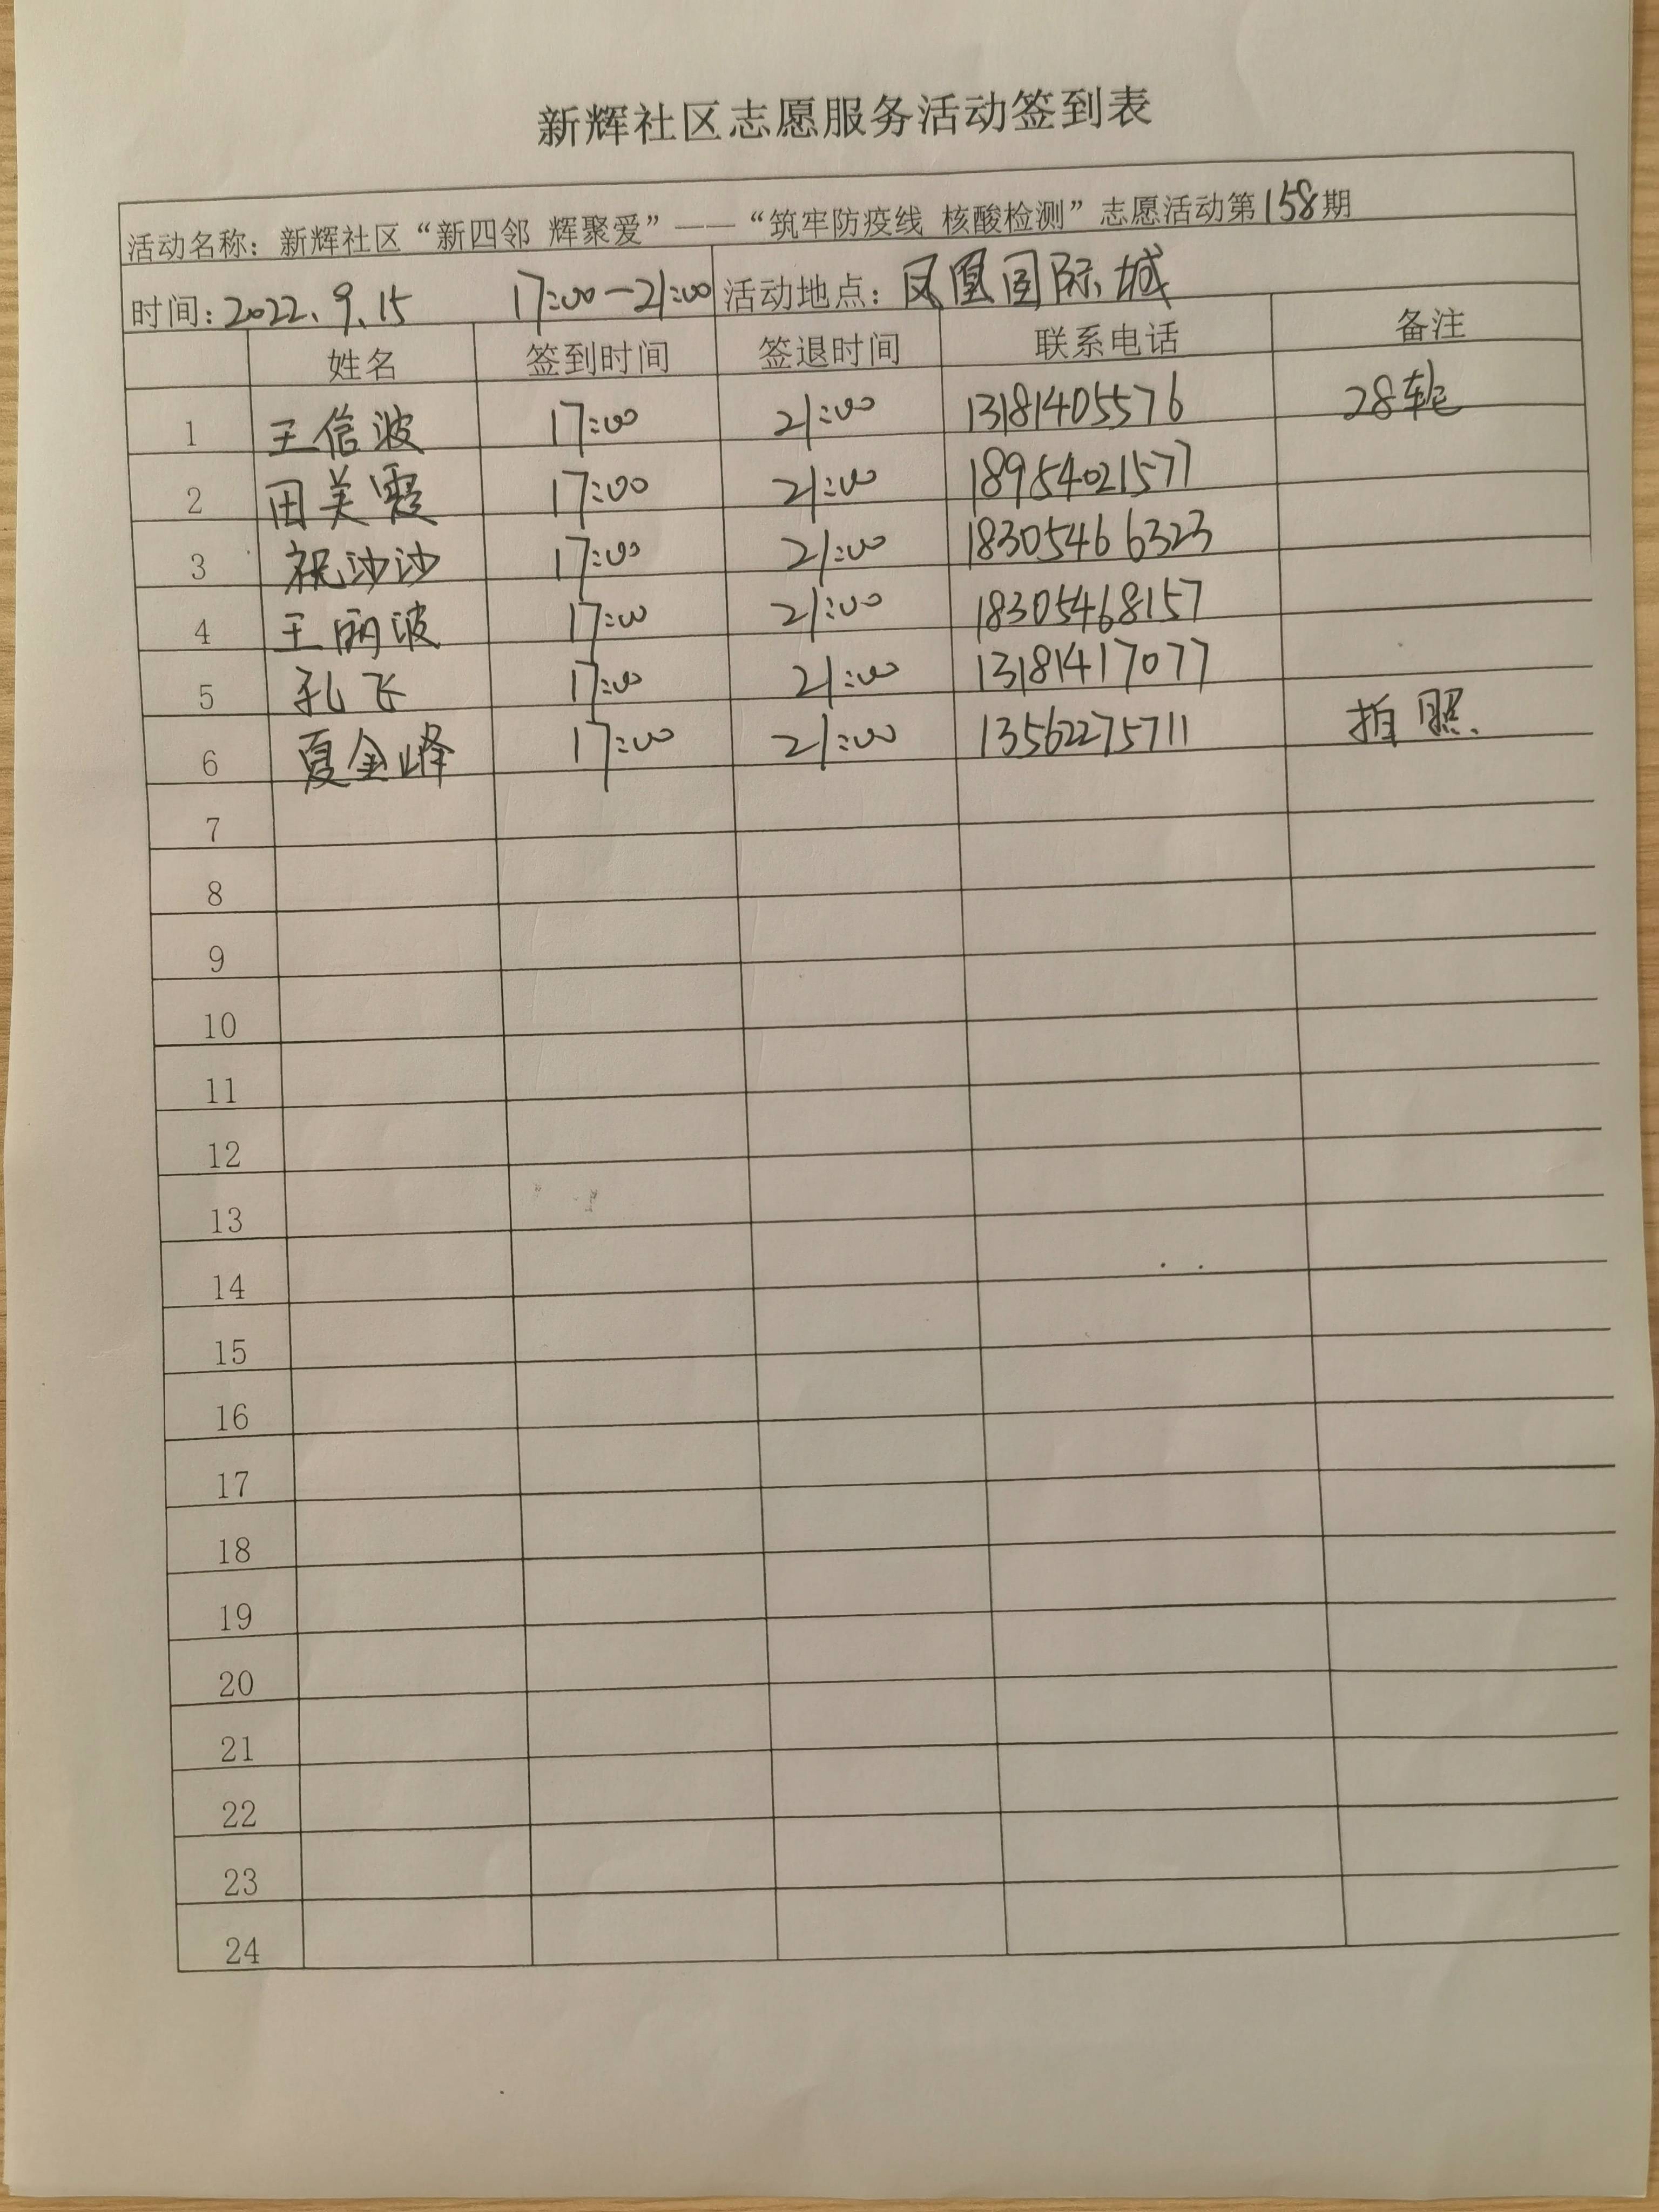 新辉社区志愿服务活动签到表
活动名称：新辉社区“新四邻 辉聚爱”——“筑牢防疫线 核酸检测”志愿活动第158期
时间：2022、9、15 17:00—21:00 活动地点：凤凰国际城
姓名 签到时间 签退时间 联系电话 备注
1 王信波 17:00 21:00 13181405576 28轮
2 田美霞 17:00 21:00 18954021577
3 祝沙沙 17:00 21:00 18305466323
4 王丽波 17:00 21:00 18305468157
5 孔飞 17:00 21:00 13181417077
6 夏金峰 17:00 21:00 13562275711 拍照.
7
8
9
10
11
12
13
14
15
16
17
18
19
20
21
22
23
24